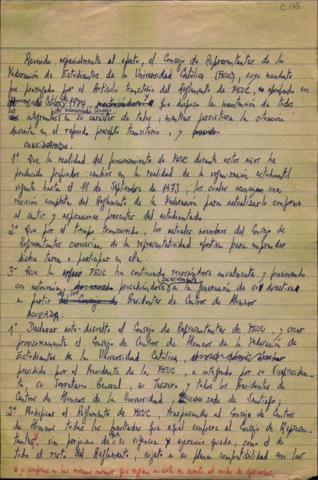 C.145
Reunido especialmente al efecto, el Consejo de Representantes de la
Federación de Estudiantes de la Universidad Católica (FEUC), cuyo mandato
fue prorrogado por el Artículo transitorio del Reglamento de FEUC, aprobado en
1974 que dispuso la mantención de todos
sus integrantes en su carácter de tales, mientras persistiera la situación
descrita en el referido precepto transitorio, y
CONSIDERANDO:
1° Que la realidad del funcionamiento de FEUC durante estos años ha
producido profundos cambios en la realidad de la organización estudiantil
vigente hasta el 11 de Septiembre de 1973, los cuales aconsejan una
revisión completa del Reglamento de la Federación para actualizarlo conforme
al sentir y aspiraciones presentes del estudiantado.
2° Que por el tiempo transcurrido, los actuales miembros del Consejo de
Representantes carecerían de la representatividad efectiva para emprender
dicha tarea o participar en ella.
3° Que la FEUC ha continuado renovándose anualmente y funcionando
con autonomía, procediéndose a la generación de su directiva
a partir Presidentes de Centros de Alumnos
ACUERDA:
1° Declarar auto-disuelto el Consejo de Representantes de FEUC, y crear
provisoriamente el Consejo de Centros de Alumnos de la Federación de
Estudiantes de la Universidad Católica,
presidido por el Presidente de la FEUC, e integrado por su Vicepresiden-
te, su Secretario General, su Tesorero y todos los Presidentes de
Centros de Alumnos de la Universidad, sede de Santiago;
2° Modificar el Reglamento de FEUC, traspasando al Consejo de Centros
de Alumnos todas las facultades que aquél confiere al Consejo de Represen-
tantes, sin perjuicio de que su vigencia y ejercicio quede, como el de
todo el resto del Reglamento, sujeto a su plena compatibilidad con las
y conforme a las mismas normas que regían en éste en cuanto al modo de ejercerlas.